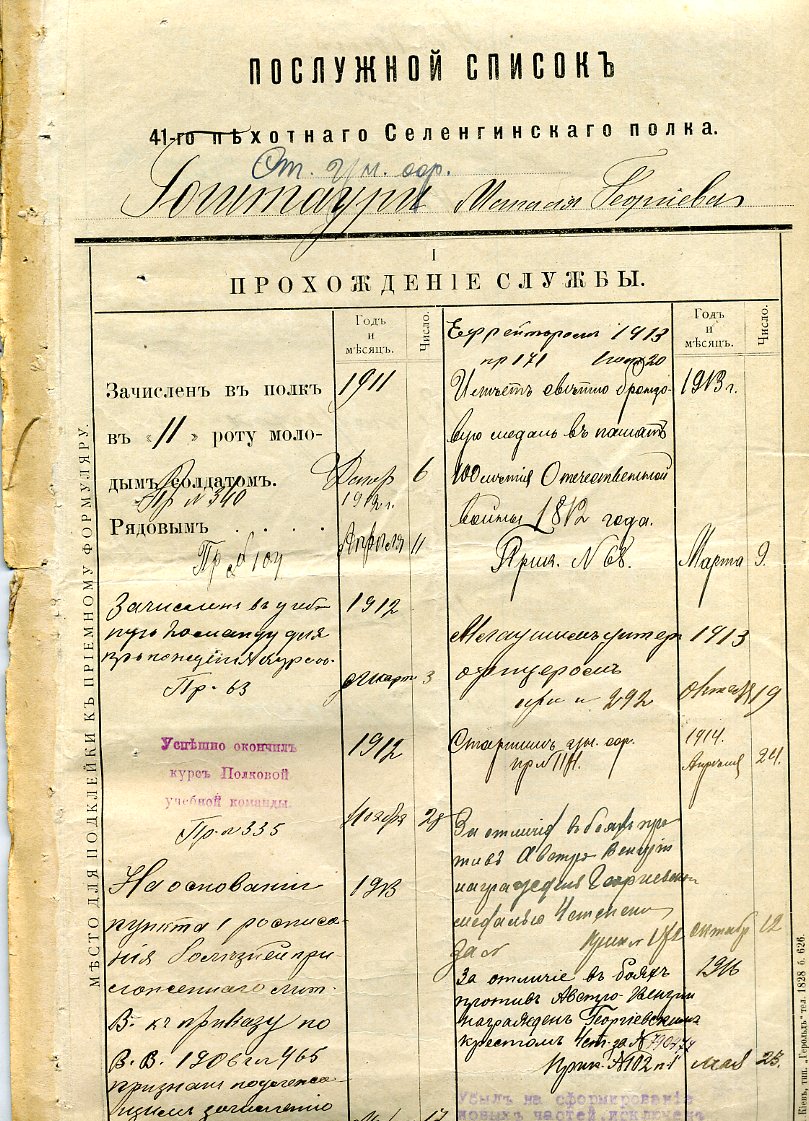 ПОСЛУЖНОЙ СПИСОКЪ
41-го пѣхотнаго Селенгинскаго полка.
Ст. ун. оф.
Георгіева
I
ПРОХОЖДЕНІЕ СЛУЖБЫ.
Годъ и мѣсяцъ.
Число.
Зачисленъ въ полкъ 1911
въ «11» роту моло-
дымъ солдатомъ. Декабр 6
Пр № 340 1912 г.
Рядовымъ . . . . Апрѣля 11
Пр № 104
Зачисленъ въ учеб- 1912
ную команду для
прохожденія курсов
Пр. 63 Марта 3
Успѣшно окончилъ 1912
курсъ Полковой
учебной команды.
Пр. № 335 Ноября 28
На основаніи 1913
пункта 1 росписа-
нія болѣзней при-
ложеннаго лит.
В. къ приказу по
В. В. 1906 г. № 465
признанъ подлежа-
щимъ зачисленію
17
Годъ и мѣсяцъ.
Число.
Ефрейторомъ 1913
пр 171 20
Имѣетъ свѣтло бронзо- 1913 г.
вую медаль въ память
100 лѣтія Отечественной
войны 1812 года.
Прик. № 68. Марта 9.
Младшимъ унтеръ 1913
офицеромъ
при № 292 Октября 19
Старшимъ ун. оф. 1914.
пр № 114. Апрѣля 24.
За отличія въ бояхъ про-
тивъ Австро Венгріи
награжденъ Георгіевской
медалью 4 степени
за № Прик № 172 Октябр 12
За отличіе въ бояхъ 1916
противъ Австро-Венгріи
награжденъ Георгіевскимъ
крестомъ 4 ст. за №
Прик. № 102 п 1 мая 25.
Убылъ на сформированіе
новыхъ частей исключенъ
МѢСТО ДЛЯ ПОДКЛЕЙКИ КЪ ПРІЕМНОМУ ФОРМУЛЯРУ.
Кіевъ, тип. „Герольдъ" тел. 1828 б. 626.